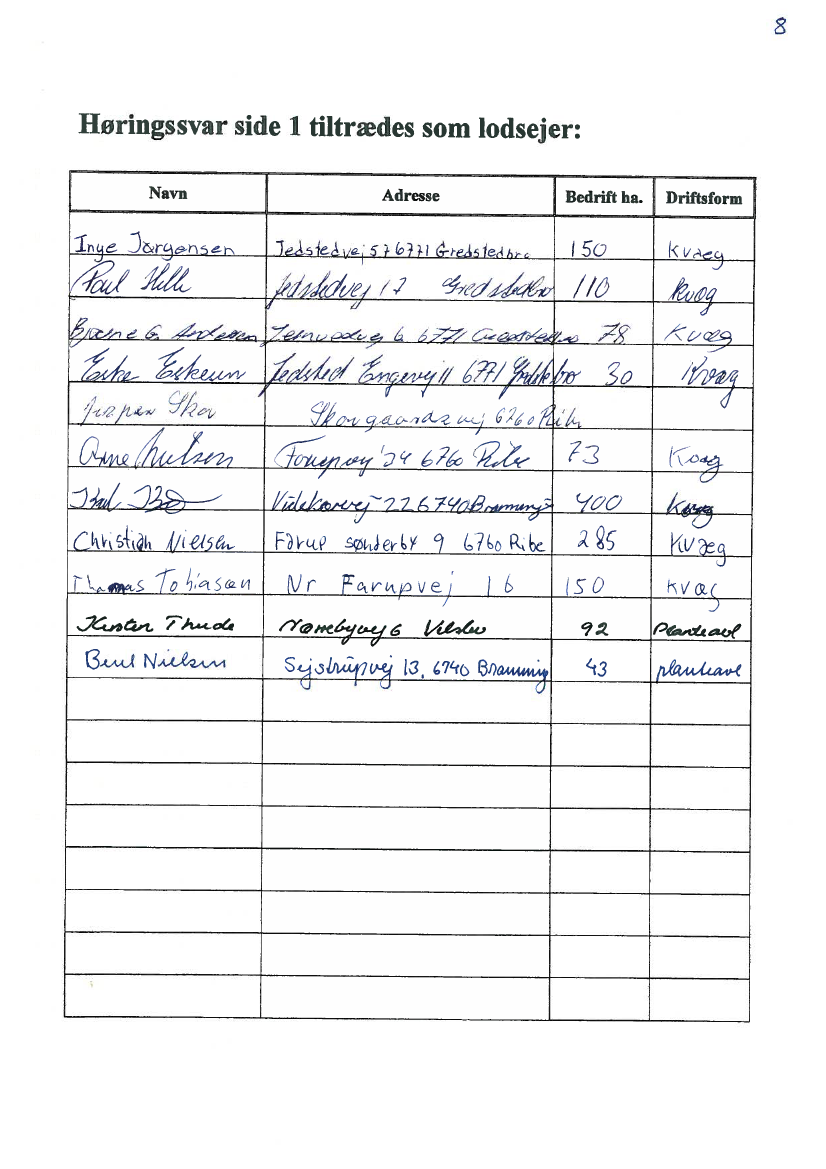 8
Høringssvar side 1 tiltrædes som lodsejer:
Navn Adresse Bedrift ha. Driftsform
Inge Jørgensen Jedstedvej 57 6771 Gredstedbro 150 Kvæg
Poul Jedstedvej 17 Gredstedbro 110 Kvæg
Bjarne G. Andersen 6 6771 Gredstedbro 78 Kvæg
Eskesen Jedsted Engevej 11 6771 30 Kvæg
Skov Skovgaardsvej 6760 Ribe
Arne Nielsen 24 6760 Ribe 73 Kvæg
22 6740 Bramming 400 Kvæg
Christian Nielsen Farup sønderby 9 6760 Ribe 285 Kvæg
Thomas Tobiasen Nr Farupvej 16 150 Kvæg
Kirsten Thude 6 Vilslev 92 Planteavl
Bent Nielsen Sejstrupvej 13, 6740 Bramming 43 planteavl